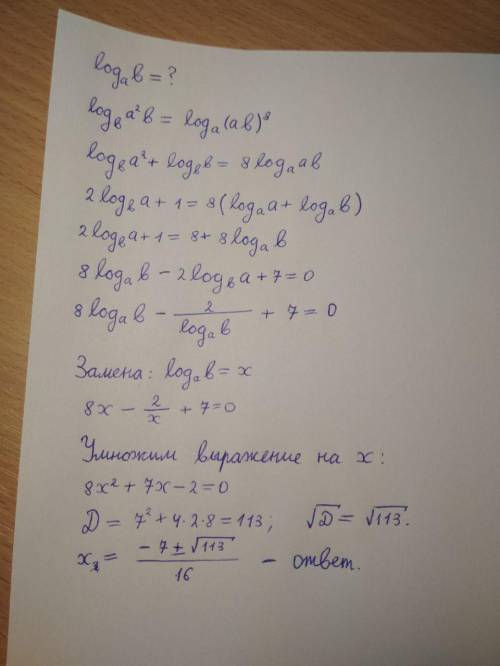 log_a b = ?
log_b a²b = log_a (ab)⁸
log_b a² + log_b b = 8 log_a ab
2 log_b a + 1 = 8(log_a a + log_a b)
2 log_b a + 1 = 8 + 8 log_a b
8 log_a b − 2 log_b a + 7 = 0
8 log_a b − 2/(log_a b) + 7 = 0
Замена: log_a b = x
8x − 2/x + 7 = 0
Умножим выражение на x:
8x² + 7x − 2 = 0
D = 7² + 4·2·8 = 113; √D = √113.
x = (−7 ± √113)/16 – ответ.